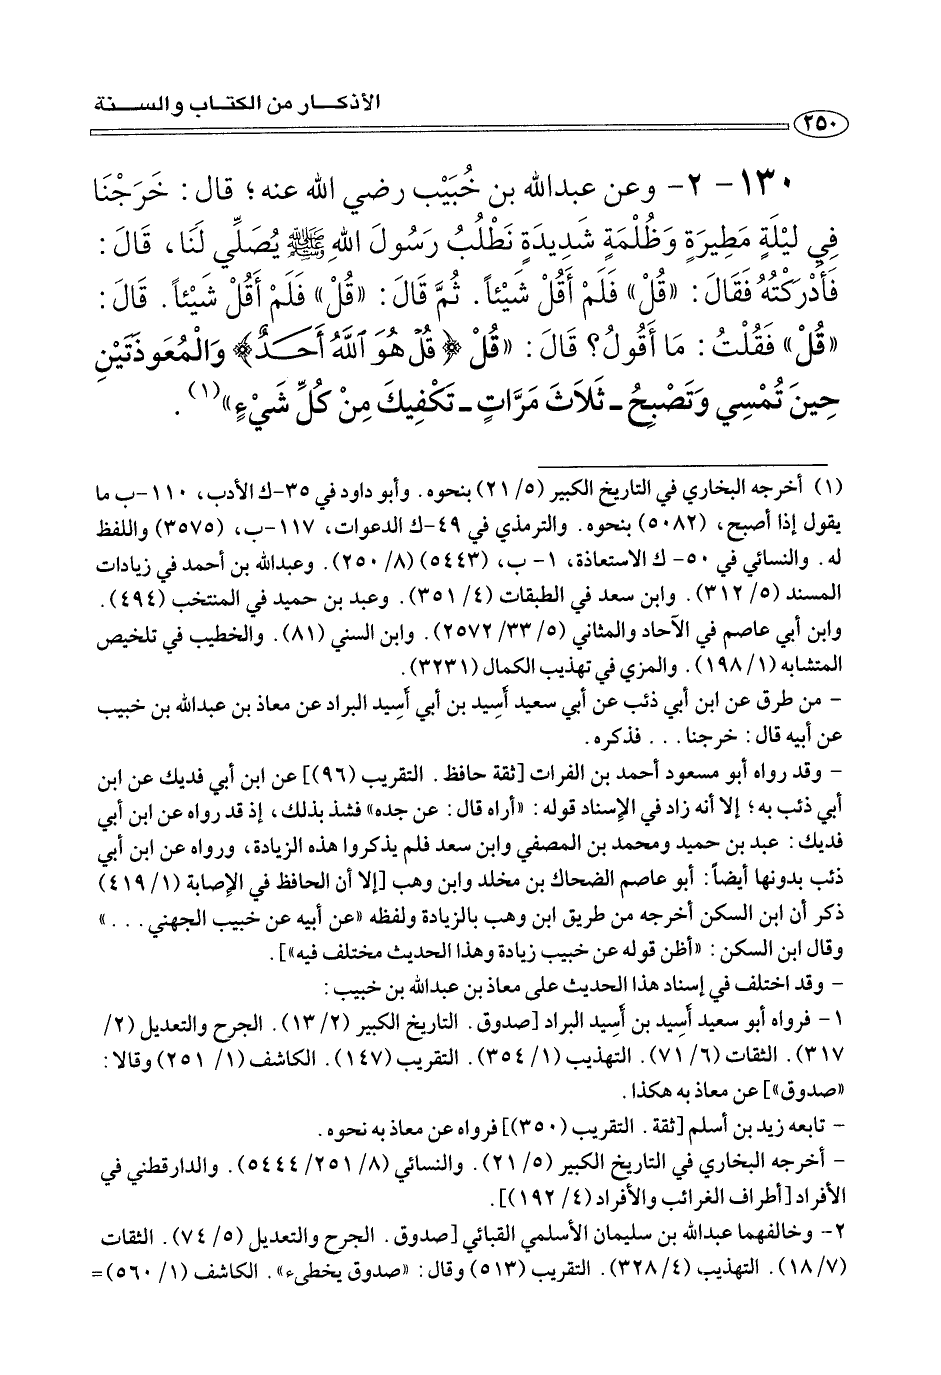 الأذكـــار من الكتـاب والســـنة
٢٥٠
١٣٠- ٢- وعن عبدالله بن خُبَيْب رضي الله عنه؛ قال: خَرَجْنَا
فِي لَيْلَةٍ مَطِيرَةٍ وَظُلْمَةٍ شَدِيدَةٍ نَطْلُبُ رَسُولَ اللهِ ﷺ يُصَلِّي لَنَا، قَالَ:
فَأَدْرَكْتُهُ فَقَالَ: «قُلْ» فَلَمْ أَقُلْ شَيْئاً. ثُمَّ قَالَ: «قُلْ» فَلَمْ أَقُلْ شَيْئاً. قَالَ:
«قُلْ» فَقُلْتُ: مَا أَقُولُ؟ قَالَ: «قُلْ ﴿قُلْ هُوَ ٱللَّهُ أَحَدٌ﴾ وَالْمُعَوذَتَيْنِ
حِينَ تُمْسِي وَتَصْبِحُ ـ ثَلَاثَ مَرَّاتٍ ـ تَكْفِيكَ مِنْ كُلِّ شَيْءٍ»(١).
(١) أخرجه البخاري في التاريخ الكبير (٥/ ٢١) بنحوه. وأبو داود في ٣٥-ك الأدب، ١١٠-ب ما
يقول إذا أصبح، (٥٠٨٢) بنحوه. والترمذي في ٤٩-ك الدعوات، ١١٧-ب، (٣٥٧٥) واللفظ
له. والنسائي في ٥٠- ك الاستعاذة، ١- ب، (٥٤٤٣) (٨/ ٢٥٠). وعبدالله بن أحمد في زيادات
المسند (٥/ ٣١٢). وابن سعد في الطبقات (٤/ ٣٥١). وعبد بن حميد في المنتخب (٤٩٤).
وابن أبي عاصم في الآحاد والمثاني (٥/ ٣٣/ ٢٥٧٢). وابن السني (٨١). والخطيب في تلخيص
المتشابه (١/ ١٩٨). والمزي في تهذيب الكمال (٣٢٣١).
- من طرق عن ابن أبي ذئب عن أبي سعيد أَسِيد بن أبي أَسِيد البراد عن معاذ بن عبدالله بن خبيب
عن أبيه قال: خرجنا... فذكره.
- وقد رواه أبو مسعود أحمد بن الفرات [ثقة حافظ. التقريب (٩٦)] عن ابن أبي فديك عن ابن
أبي ذئب به؛ إلا أنه زاد في الإسناد قوله: «أراه قال: عن جده» فشذ بذلك، إذ قد رواه عن ابن أبي
فديك: عبد بن حميد ومحمد بن المصفي وابن سعد فلم يذكروا هذه الزيادة، ورواه عن ابن أبي
ذئب بدونها أيضاً: أبو عاصم الضحاك بن مخلد وابن وهب [إلا أن الحافظ في الإصابة (١/ ٤١٩)
ذكر أن ابن السكن أخرجه من طريق ابن وهب بالزيادة ولفظه «عن أبيه عن خبيب الجهني...»
وقال ابن السكن: «أظن قوله عن خبيب زيادة وهذا الحديث مختلف فيه»].
- وقد اختلف في إسناد هذا الحديث على معاذ بن عبدالله بن خبيب:
١- فرواه أبو سعيد أَسِيد بن أَسِيد البراد [صدوق. التاريخ الكبير (٢/ ١٣). الجرح والتعديل (٢/
٣١٧). الثقات (٦/ ٧١). التهذيب (١/ ٣٥٤). التقريب (١٤٧). الكاشف (١/ ٢٥١) وقالا:
«صدوق»] عن معاذ به هكذا.
- تابعه زيد بن أسلم [ثقة. التقريب (٣٥٠)] فرواه عن معاذ به نحوه.
- أخرجه البخاري في التاريخ الكبير (٥/ ٢١). والنسائي (٨/ ٢٥١/ ٥٤٤٤). والدارقطني في
الأفراد [أطراف الغرائب والأفراد (٤/ ١٩٢)].
٢- وخالفهما عبدالله بن سليمان الأسلمي القبائي [صدوق. الجرح والتعديل (٥/ ٧٤). الثقات
(٧/ ١٨). التهذيب (٤/ ٣٢٨). التقريب (٥١٣) وقال: «صدوق يخطىء». الكاشف (١/ ٥٦٠)=